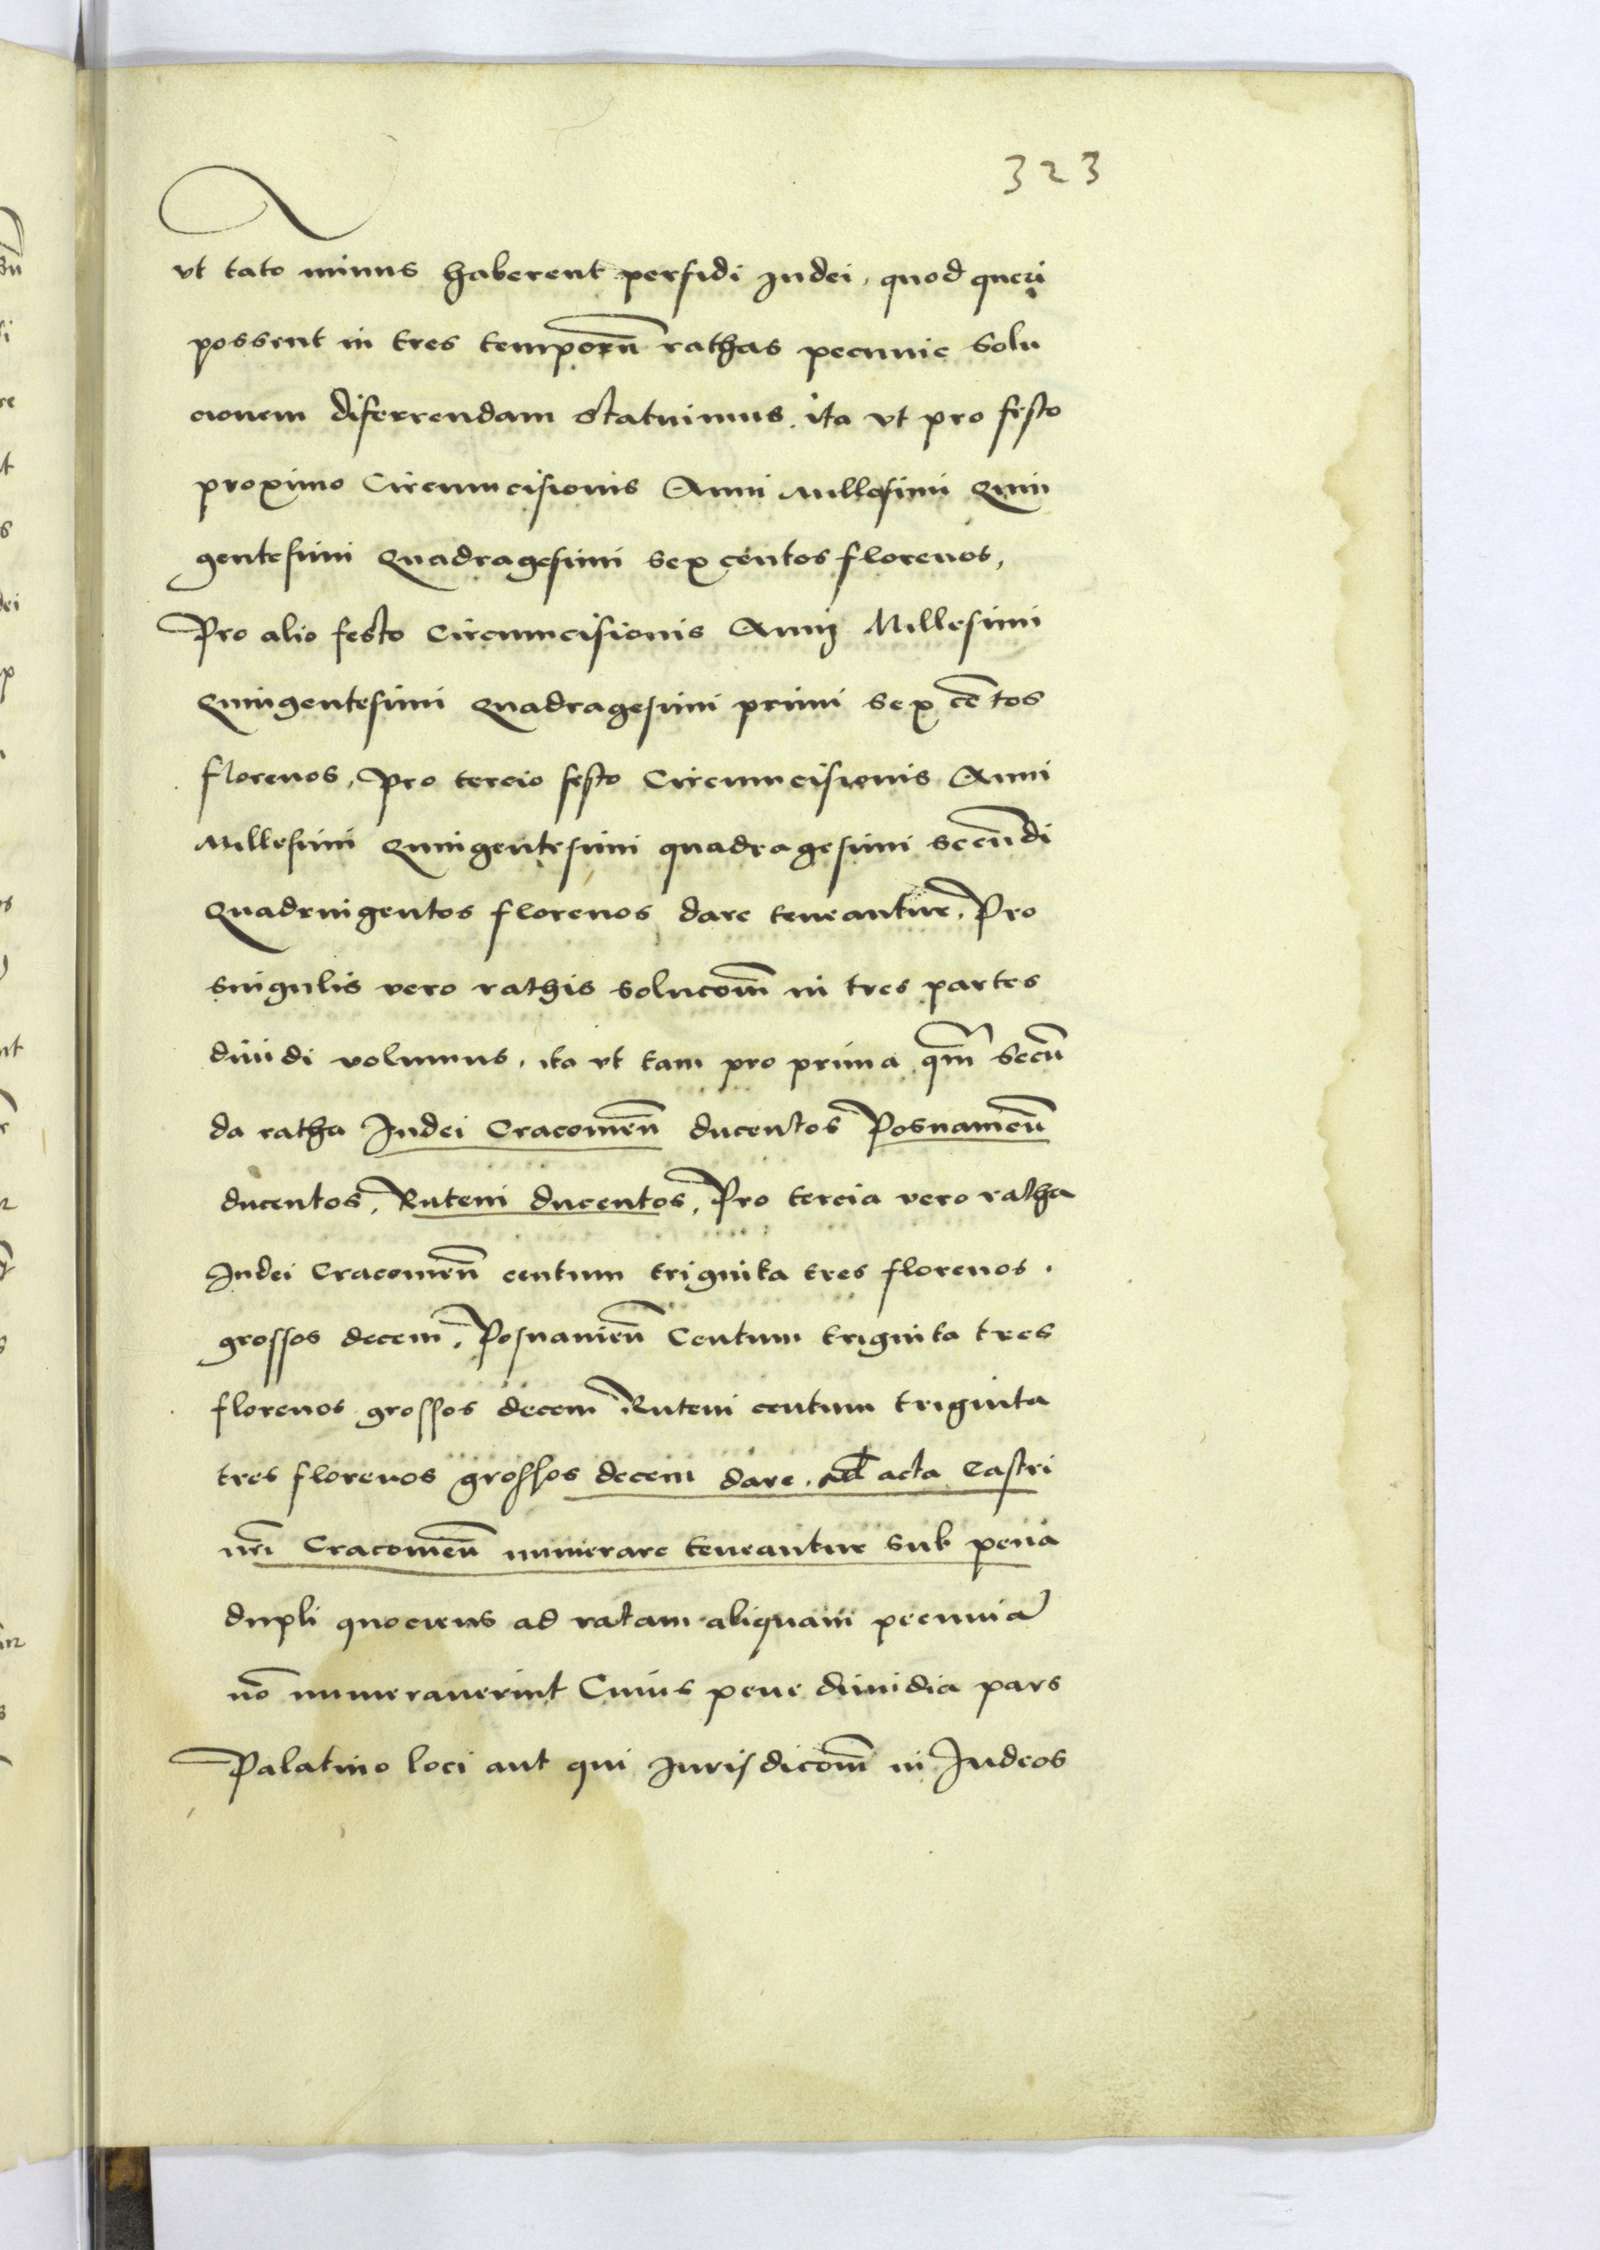 323
vt tato minus haberent perfidi Iudei, quod queri
possent in tres temporū rathas pecunie solu
cionem differrendam statuimus, ita vt pro festo
proximo Circumcisionis Anni Millesimi Quin
gentesimi Quadragesimi sex centos florenos,
Pro alio festo Circumcisionis Anni Millesimi
Quingentesimi Quadragesimi primi sex cētos
florenos, Pro tercio festo Circumcisionis Anni
Millesimi Quingentesimi quadragesimi secūdi
Quadringentos florenos dare teneantur, Pro
singulis vero rathis solucoīn in tres partes
diuidi volumus, ita vt tam pro prima qm̄ Secū
da ratha Iudei Cracouieñ ducentos Posnanieñ
ducentos, Ruteni ducentos, Pro tercia vero ratha
Iudei Cracouieñ centum triginta tres florenos,
grossos decem, Posnanieñ Centum triginta tres
florenos grossos decem Ruteni centum triginta
tres florenos grossos decem dare, ad acta Castri
nrī Cracouieñ numerare teneantur sub pena
dupli quociens ad ratam aliquam pecuniā
nō numerauerint Cuius pene dimidia pars
Palatino loci aut qui Iurisdicoīn in Iudeos